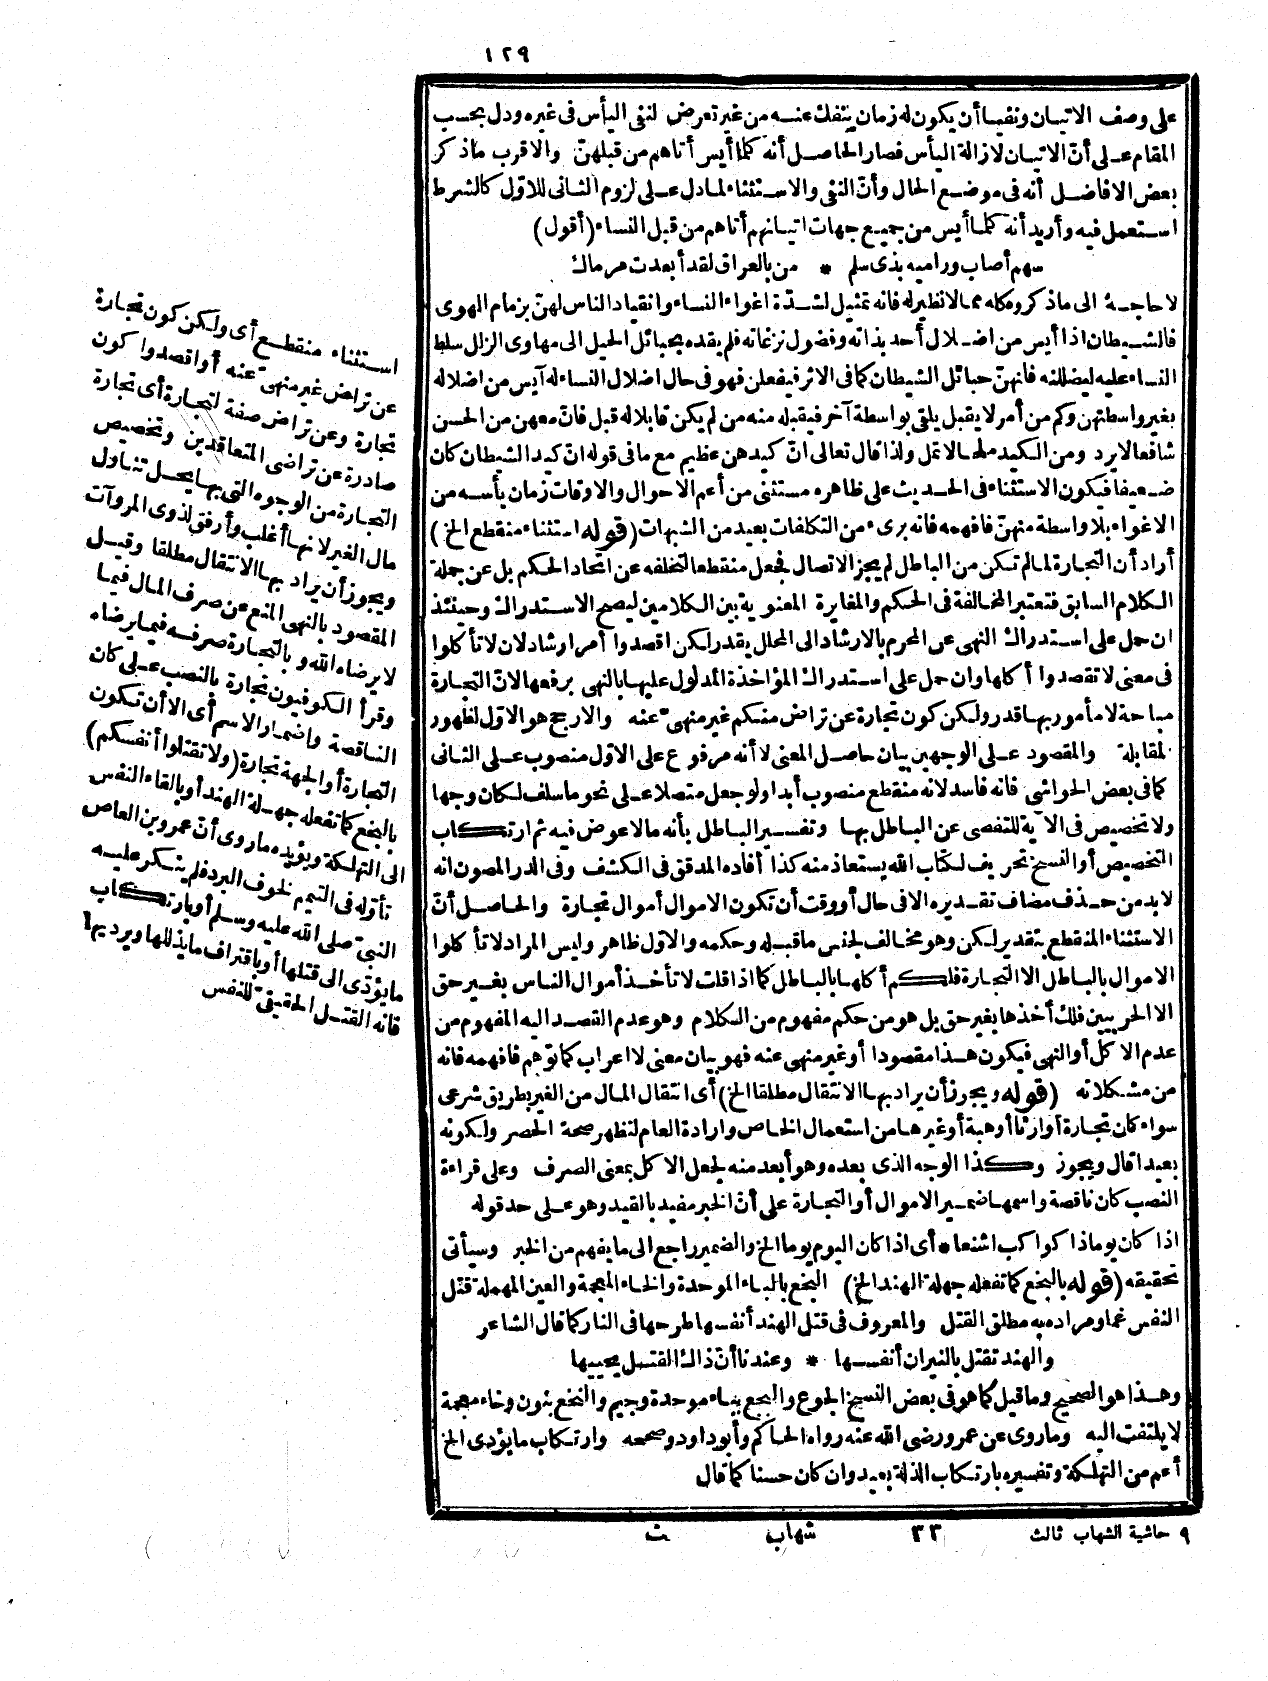 ١٢٩
على وصف الاتيان ونفيا أن يكون له زمان ينفك عنه من غير تعرض لنفى اليأس فى غيره ودل بحسب
المقام على أنّ الاتيان لازالة اليأس فصار الحاصل أنه كلما أيس أتاهم من قبلهنّ والاقرب ماذكر
بعض الافاضل أنه فى موضع الحال وأنّ النفى والاستثناء لمادل على لزوم الثانى للاوّل كالشرط
استعمل فيه وأريد أنه كلما أيس من جميع جهات اتيانهم أتاهم من قبل النساء (أقول)
سهم أصاب وراميه بذى سلم * من بالعراق لقد أبعدت مرماك
لا حاجة الى ماذكروه كله مما لا نظير له فانه تمثيل لشدّة اغواء النساء وانقياد الناس لهنّ بزمام الهوى
فالشيطان اذا أيس من اضلال أحد بذاته وفضول نزغاته فلم يقده بحبائل الحيل الى مهاوى الزلل سلط
النساء عليه ليضللنه فانهنّ حبائل الشيطان كما فى الاثر فيفعلن فهو فى حال اضلال النساء له آيس من اضلاله
بغير واسطتهن وكم من أمر لا يقبل يلقى بواسطة آخر فيقبله منه من لم يكن قابلا له قبل فانّ معهن من الحسن
شافعا لا يرد ومن الكيد ملحا لا تمل ولذا قال تعالى انّ كيدهن عظيم مع ما فى قوله انّ كيد الشيطان كان
ضعيفا فيكون الاستثناء فى الحديث على ظاهره مستثنى من أعم الاحوال والاوقات زمان يأسه من
الاغواء بلا واسطة منهنّ فافهمه فانه برىء من التكلفات بعيد من الشبهات (قوله استثناء منقطع الخ)
أراد أن التجارة لما لم تكن من الباطل لم يجز الاتصال فجعل منقطعا لتخلفه عن اتحاد الحكم بل عن جملة
الكلام السابق فتعتبر المخالفة فى الحكم والمغايرة المعنوية بين الكلامين ليصح الاستدراك وحينئذ
ان حمل على استدراك النهى عن المحرم بالارشاد الى المحلل يقدر لكن اقصدوا أمر ارشاد لان لا تأكلوا
فى معنى لا تقصدوا أكلها وان حمل على استدراك المؤاخذة المدلول عليها بالنهى برفعها لانّ التجارة
مباحة لا مأمور بها قدر ولكن كون تجارة عن تراض منكم غير منهىّ عنه والارجح هو الاوّل لظهور
المقابلة والمقصود على الوجهين بيان حاصل المعنى لا أنه مرفوع على الاوّل منصوب على الثانى
كما فى بعض الحواشى فانه فاسد لانه منقطع منصوب أبدا ولو جعل متصلا على نحو ما سلف لكان وجها
ولا تخصيص فى الآية للتفصى عن الباطل بها وتفسير الباطل بأنه ما لا عوض فيه ثم ارتكاب
التخصيص أو النسخ تحريف لكتاب الله يستعاذ منه كذا أفاده المدقق فى الكشف وفى الدر المصون انه
لا بد من حذف مضاف تقديره الا فى حال أو وقت أن تكون الاموال أموال تجارة والحاصل أنّ
الاستثناء المنقطع بتقدير لكن وهو مخالف لجنس ما قبله وحكمه والاوّل ظاهر وليس المراد لا تأكلوا
الاموال بالباطل الا التجارة فلكم أكلها بالباطل كما اذا قلت لا تأخذ أموال الناس بغير حق
الا الحربيين فلك أخذها بغير حق بل هو من حكم مفهوم من الكلام وهو عدم القصد اليه المفهوم من
عدم الاكل أو النهى فيكون هذا مقصودا أو غير منهى عنه فهو بيان معنى لا اعراب كما توهم فافهمه فانه
من مشكلاته (قوله ويجوز أن يراد بها الانتقال مطلقا الخ) أى انتقال المال من الغير بطريق شرعى
سواء كان تجارة أو ارثا أو هبة أو غيرها من استعمال الخاص وارادة العام لتظهر صحة الحصر ولكونه
بعيدا قال ويجوز وكذا الوجه الذى بعده وهو أبعد منه لجعل الاكل بمعنى الصرف وعلى قراءة
النصب كان ناقصة واسمها ضمير الاموال أو التجارة على أنّ الخبر مفيد بالقيد وهو على حد قوله
اذا كان يوما ذا كواكب اشنعا * أى اذا كان اليوم يوما الخ والضمير راجع الى ما يفهم من الخبر وسيأتى
تحقيقه (قوله بالبخع كما تفعله جهلة الهند الخ) البخع بالباء الموحدة والخاء المعجمة والعين المهملة قتل
النفس غما ومراده به مطلق القتل والمعروف فى قتل الهند أنفسها طرحها فى النار كما قال الشاعر
والهند تقتل بالنيران أنفسها * وعندنا أنّ ذاك القتل يحييها
وهذا هو الصحيح وما قيل كما هو فى بعض النسخ الجوع والبجع بباء موحدة وجيم والنخع بنون وخاء معجمة
لا يلتفت اليه وما روى عن عمرو رضى الله عنه رواه الحاكم وأبو داود وصححه وارتكاب ما يؤدى الخ
أعم من التهلكة وتفسيره بارتكاب الذلة بعيد وان كان حسنا كما قال
استثناء منقطع أى ولكن كون تجارة
عن تراض غير منهىّ عنه أو اقصدوا كون
تجارة وعن تراض صفة لتجارة أى تجارة
صادرة عن تراضى المتعاقدين وتخصيص
التجارة من الوجوه التى بها يحل تناول
مال الغير لانها أغلب وأرفق لذوى المروآت
ويجوز أن يراد بها الانتقال مطلقا وقيل
المقصود بالنهى المنع عن صرف المال فيما
لا يرضاه الله وبالتجارة صرفه فيما يرضاه
وقرأ الكوفيون تجارة بالنصب على كان
الناقصة واضمار الاسم أى الا أن تكون
التجارة أو الجهة تجارة (ولا تقتلوا أنفسكم)
بالبخع كما تفعله جهلة الهند أو بالقاء النفس
الى التهلكة ويؤيده ما روى أنّ عمرو بن العاص
تأوّله فى التيمم لخوف البرد فلم ينكر عليه
النبىّ صلى الله عليه وسلم أو بارتكاب
ما يؤدّى الى قتلها أو باقتراف ما يذللها ويرديها
فانه القتل الحقيقىّ للنفس
٩ حاشية الشهاب ثالث ٣٣ شهاب ث